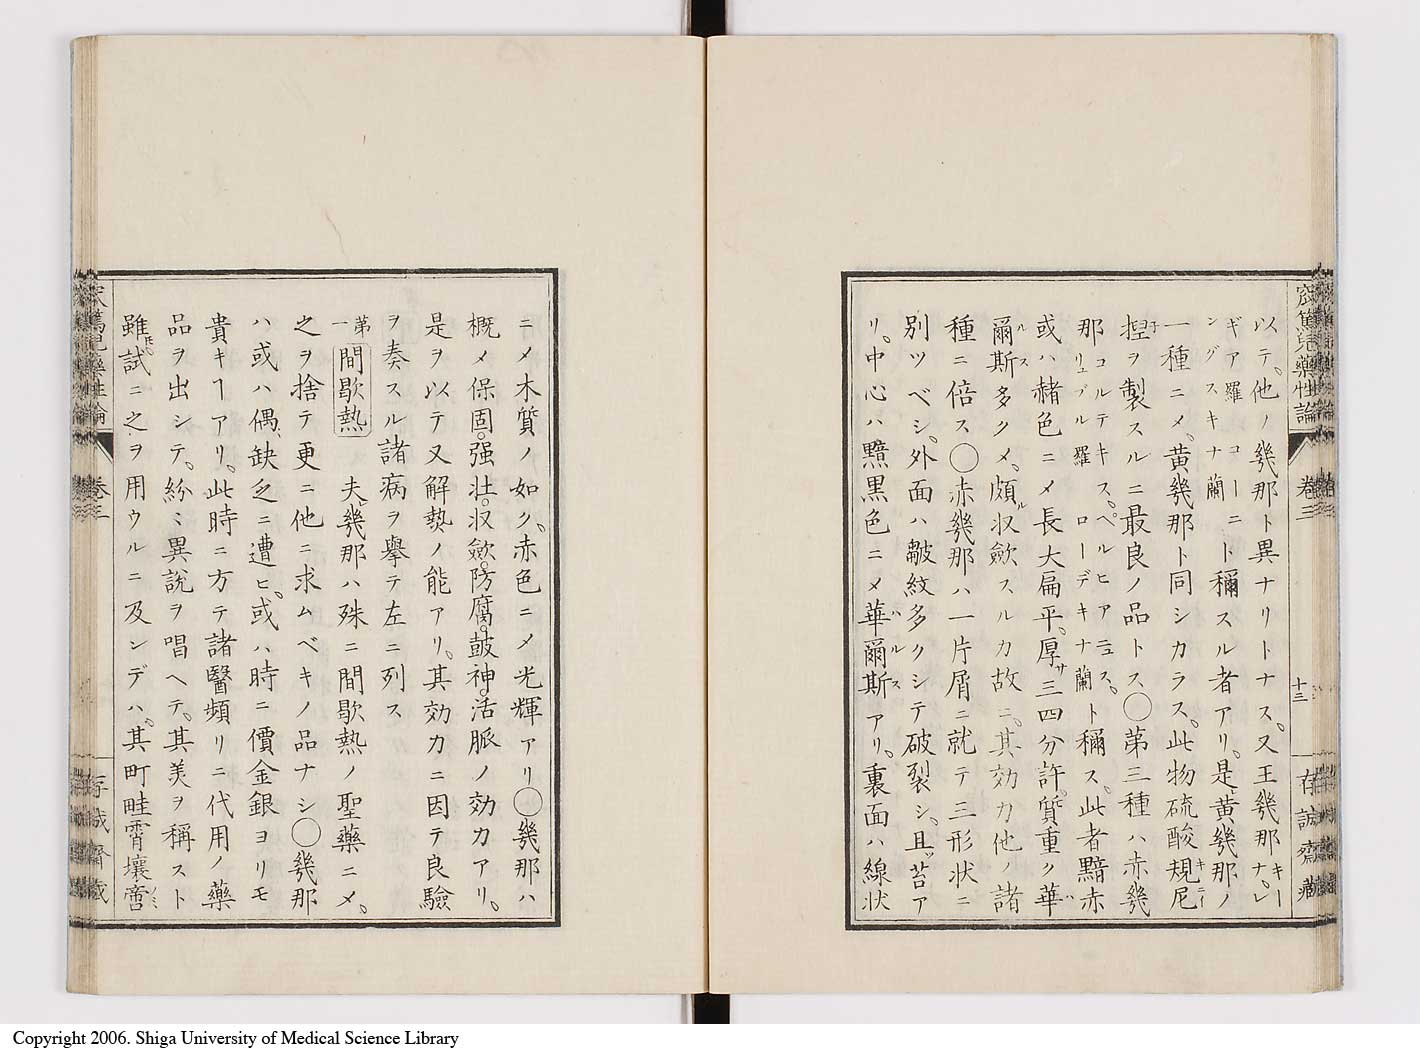 窊篤児藥性論 卷三 十三 存誠齋藏
以テ、他ノ幾那ト異ナリトナス。又王幾那ナ。レキー
ギア羅コーニト稱スル者アリ。是黄幾那ノ
ングスキナ蘭
一種ニメ、黄幾那ト同シカラス。此物硫酸規尼キニー
捏子ヲ製スルニ最良ノ品トス○第三種ハ赤幾
那コルテキス。ペルヒアニュス。ト稱ス。此者黯赤
リュブル羅 ローデキナ蘭
或ハ赭色ニメ長大扁平、厚サ三四分許。質重ク華ハ
爾斯ルス多クメ、頗ル収斂スルカ故ニ、其効力他ノ諸
種ニ倍ス○赤幾那ハ一片屑ニ就テ三形状ニ
別ツベシ、外面ハ皺紋多クシテ破裂シ、且ツ苔ア
リ。中心ハ黯黒色ニメ華爾斯ハルスアリ。裏面ハ線状
ニメ木質ノ如ク、赤色ニメ光輝アリ○幾那ハ
概メ保固。强壮。収斂。防腐。鼓神。活脈ノ効力アリ。
是ヲ以テ又解熱ノ能アリ。其効力ニ因テ良驗
ヲ奏スル諸病ヲ擧テ左ニ列ス
第一 間歇熱 夫幾那ハ殊ニ間歇熱ノ聖藥ニメ。
之ヲ捨テ更ニ他ニ求ムベキノ品ナシ○幾那
ハ或ハ偶缺乏ニ遭ヒ、或ハ時ニ價金銀ヨリモ
貴キヿアリ。此時ニ方テ諸醫頻リニ代用ノ藥
品ヲ出シテ。紛〻異説ヲ唱ヘテ。其美ヲ稱スト
雖モ試ニ之ヲ用ウルニ及ンデハ。其町畦霄壤啻
窊篤児藥性論 卷三 存誠齋藏
Copyright 2006. Shiga University of Medical Science Library